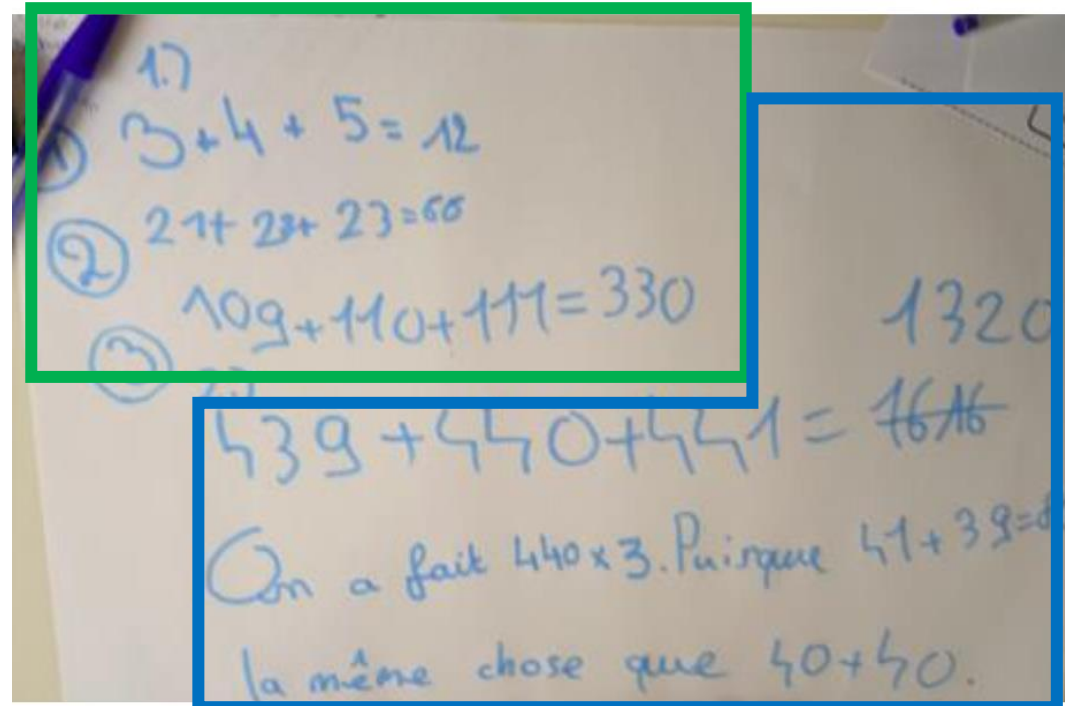 1.)
① 3+4+5=12
② 21+22+23=66
③ 109+110+111=330
1320
439+440+441=1616
On a fait 440x3. Puisque 41+39=
la même chose que 40+40.